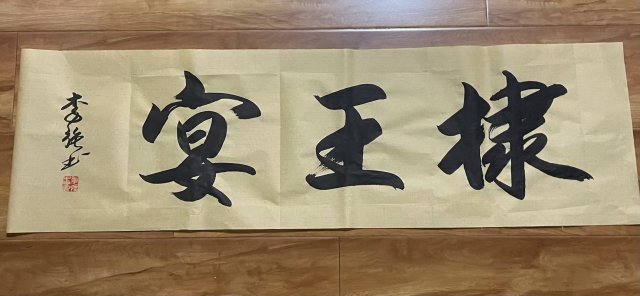 棣王宴
李
书